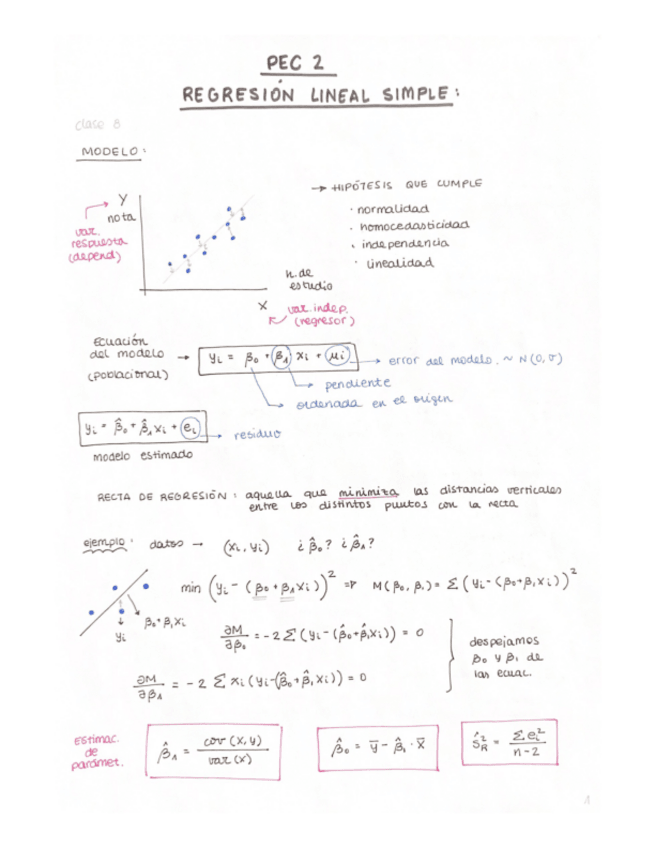 PEC 2
REGRESIÓN LINEAL SIMPLE:
clase 8
MODELO:
Y
nota
var.
respuesta
(depend)
n. de
estudio
X
var. indep.
(regresor)
→ HIPÓTESIS QUE CUMPLE
· normalidad
· homocedasticidad
· independencia
· linealidad
Ecuación
del modelo →
(poblacional)
yi = β0 + β1 xi + μi
error del modelo. ~ N(0, σ)
pendiente
ordenada en el origen
yi = β̂0 + β̂1 xi + ei
residuo
modelo estimado
RECTA DE REGRESIÓN: aquella que minimiza las distancias verticales
entre los distintos puntos con la recta
ejemplo: datos → (xi, yi) ¿β̂0? ¿β̂1?
min (yi - (β0 + β1xi))² ⇒ M(β0, β1) = Σ(yi - (β0+β1xi))²
β0 + β1xi
yi
∂M/∂β0 = -2 Σ (yi - (β̂0+β̂1xi)) = 0
∂M/∂β1 = -2 Σ xi (yi - (β̂0 + β̂1xi)) = 0
despejamos
β0 y β1 de
las ecuac.
Estimac.
de
parámet.
β̂1 = cov (x, y) / var (x)
β̂0 = ȳ - β̂1 · x̄
ŝ²R = Σ ei² / n-2
1